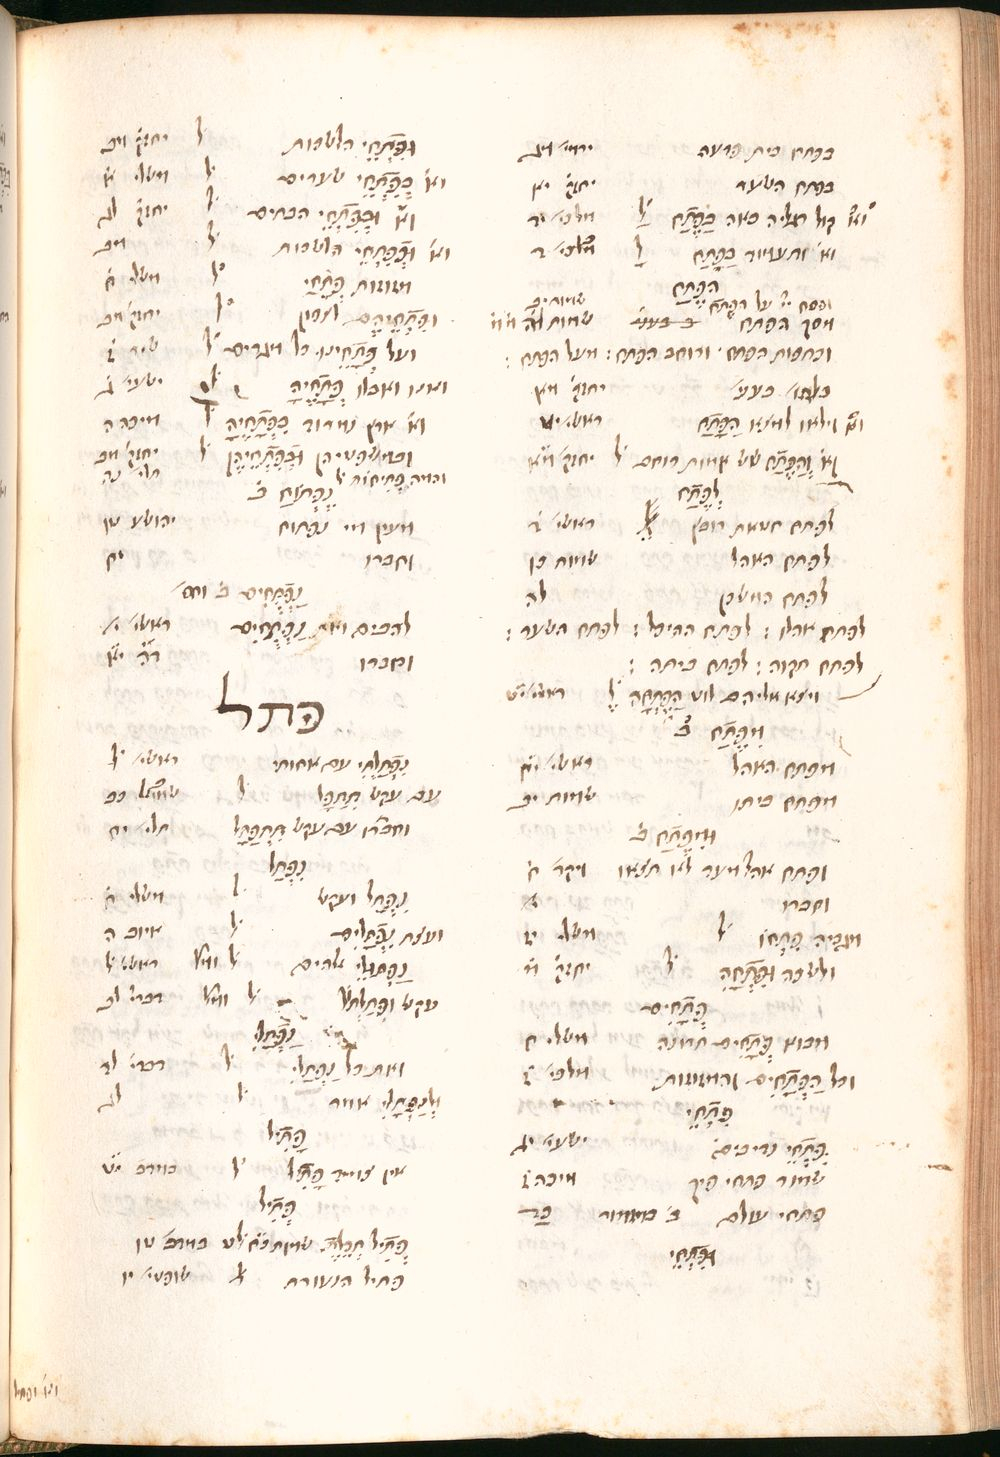 בפתח בית פרעה ירמי׳ מג
בפתח השער יחזק׳ יא
קול רגליה באה בַּפֶּתַח ל׳ מלכי׳ יד
וא׳ ותעמוד בַּפָּתַח ל׳
הפֶּתַח
ופסח יי׳ על הפתח שמות יב
מסך הפתח שמות
ובכתפות הפתח ׃ ורוחב הפתח ׃ ומעל הפתח ׃
יחזק׳ מא
וילאו למצא הַפָּתַח ראשי׳ יט
וא׳ וְהַפֶּתַח שש אמות רוחב ל׳ יחזק׳ מא
לַפֶּתַח
לפתח חטאת רובץ ל׳ ראשי׳ ד
לפתח האהל שמות כו
לפתח המשכן לה
לפתח אהלו ׃ לפתח ההיכל ׃ לפתח השער ׃
לפתח תקוה ׃ לפתח ביתה ׃
ויצא אליהם לוט הַפֶּתְחָה ל׳ ראשי׳ יט
מִפֶּתַח ב׳
מפתח האהל ראשי׳ יח
מפתח ביתו שמות יב
וּמִפֶּתַח ב׳
ומפתח אהל מועד לא תצאו ויקר׳ ח
וחברו
מגביה פִּתְחוֹ ל׳ משלי יז
ולשכה וּפִתְחָהּ ל׳ יחזק׳ מ
פְּתָחִים
מבוא פְתָחִים תרונה משלי ח
וכל הַפְּתָחִים והמזוזות מלכי׳ ז
פִּתְחֵי
פִּתְחֵי נדיבים ישעי׳ יג
שמור פתחי פיך מיכה ז
פתחי עולם ב׳ במזמור כד
וּפִתְחֵי
וּפִתְחֵי הלשכות ל׳ יחזק׳ מב
וא׳ בְּפִתְחֵי שערים ל׳ משלי א
וא׳ וּבְפִתְחֵי הבתים ל׳ יחזק׳ לג
וא׳ וּכְפִתְחֵי הלשכות ל׳ מב
מזוזות פְּתָחָי ל׳ משלי ח
וּפִתְחֵיהֶם לצפון ל׳ יחזק׳ מב
ועל פְּתָחֵינוּ כל מגדים ל׳ שיר ז
ואנו ואבלו פְּתָחֶיהָ ל׳ ישעי׳ ג
וא׳ ארץ נמרוד בִּפְתָחֶיהָ ל׳ מיכה ה
וכמשפטיהן וּכְפִתְחֵיהֶן ל׳ יחזק׳ מב
והמה פְתִיחוֹת ל׳ תלי׳ נה
נֶפְתּוֹחַ ב׳
מעין מי נפתוח יהושע טו
וחברו יח
נַפְתֻּחִים ב׳ וחס׳
להבים ואת נַפְתֻּחִים ראשי׳ י׳
וחברו דה׳ יא
פתל
נִפְתַּלְתִּי עם אחותי ראשי׳ ל
עם עקש תִּתַּפָּל ל׳ שמו׳ כב
וחברו עם עקש תִּתְפַּתָּל תלי׳ יח
נִפְתָּל
נִפְתָּל ועקש ל׳ משלי ח
ועצת נִפְתָּלִים ל׳ איוב ה
נַפְתּוּלֵי אלהים ל׳ ומל׳ ראשי׳ ל
עקש וּפְתַלְתֹּל ל׳ ומל׳ דברי׳ לב
נַפְתָּלִי
ואת כל נַפְתָּלִי ל׳ דברי׳ לד
וּלְנַפְתָּלִי אמר ל׳ לג
פָּתִיל
אין צמיד פָּתִיל ל׳ במדב׳ יט
פְּתִיל
פְּתִיל תְּכֵלֶת שמות כח לט במדב׳ טו
פתיל הנעורת ל׳ שופטי׳ יו